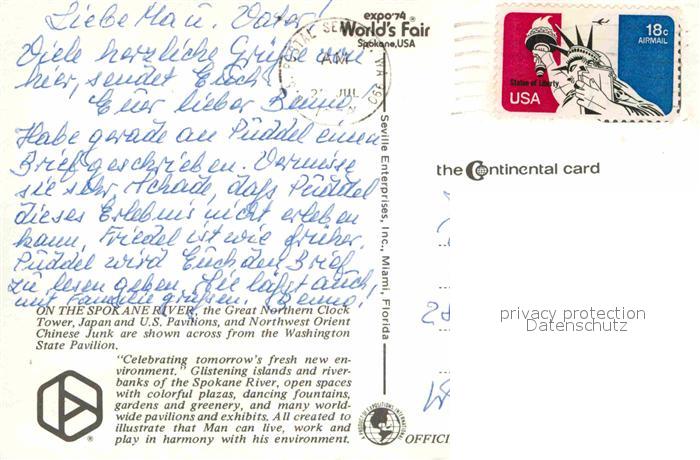 Liebe Ma u. Vater!
Viele herzliche Grüße von
hier, sendet Euch
Euer lieber Benno.
Habe gerade an Püddel einen
Brief geschrieben. Vermisse
sie sehr, schade, daß Püddel
dieses Erlebnis nicht erleben
kann. Friedel ist wie früher.
Püddel wird Euch den Brief
zu lesen geben. Sie läßt auch,
mit Familie grüßen. Benno!
ON THE SPOKANE RIVER, the Great Northern Clock
Tower, Japan and U.S. Pavilions, and Northwest Orient
Chinese Junk are shown across from the Washington
State Pavilion.
"Celebrating tomorrow's fresh new en-
vironment." Glistening islands and river-
banks of the Spokane River, open spaces
with colorful plazas, dancing fountains,
gardens and greenery, and many world-
wide pavilions and exhibits. All created to
illustrate that Man can live, work and
play in harmony with his environment.
®
expo'74 ®
World's Fair
Spokane, USA
SEATTLE
WA
AM
JUL
Seville Enterprises, Inc., Miami, Florida
18c
AIRMAIL
Statue of Liberty
USA
the Continental card
privacy protection
Datenschutz
OFFICI